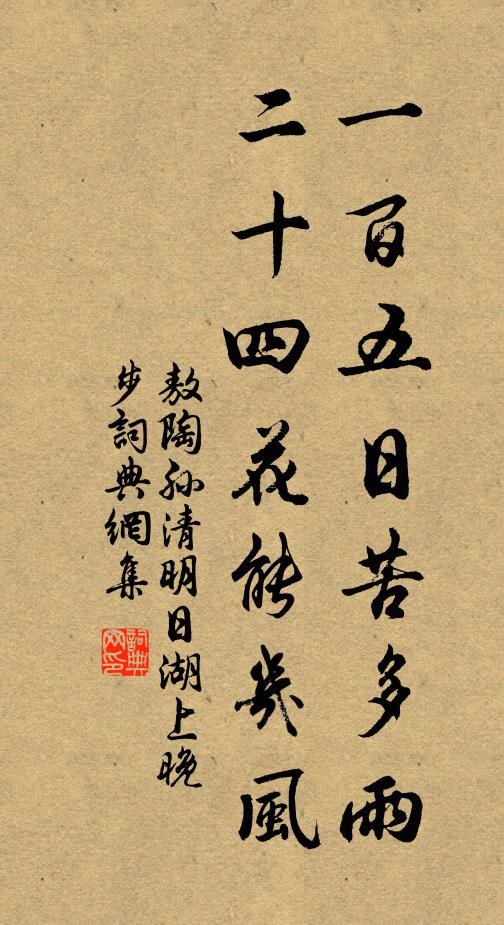 一百五日苦多雨
二十四花能幾風
敖陶孫清明日湖上晚
步詞典網集
詞典
网印